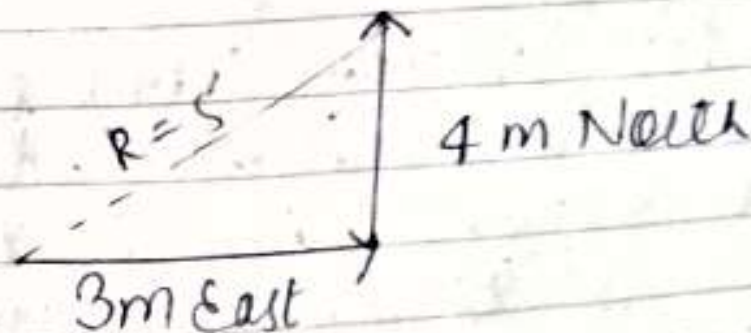 R = 5
4 m North
3m East